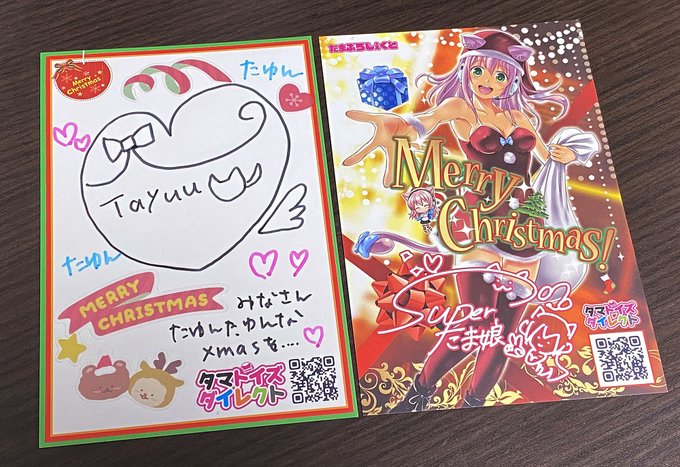 Merry
Christmas
たゆん
Tayuu
たゆん
MERRY
CHRISTMAS
みなさん
たゆんたゆんな
xmasを....
タマトイズ
ダイレクト
たまぷろじぇくと
Merry
Christmas!
Super
たま娘
タマトイズ
ダイレクト